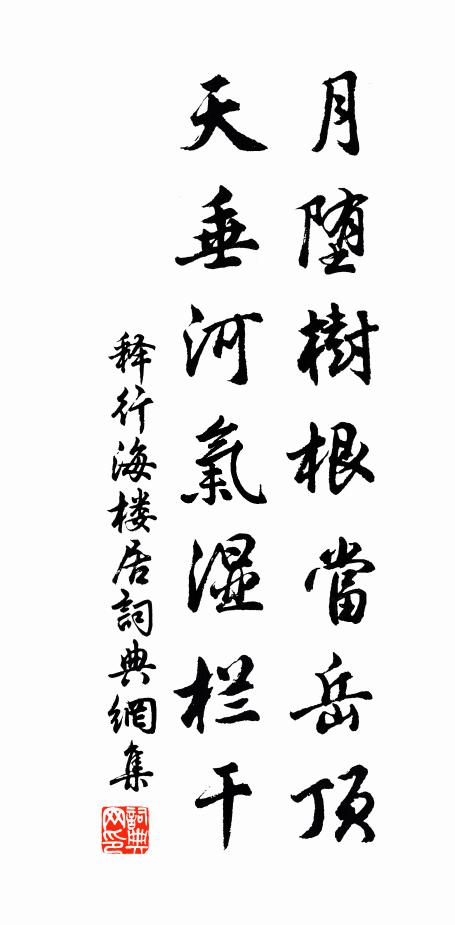 月堕樹根當岳頂
天垂河氣湿栏干
释行海楼居詞典網集
詞典网印